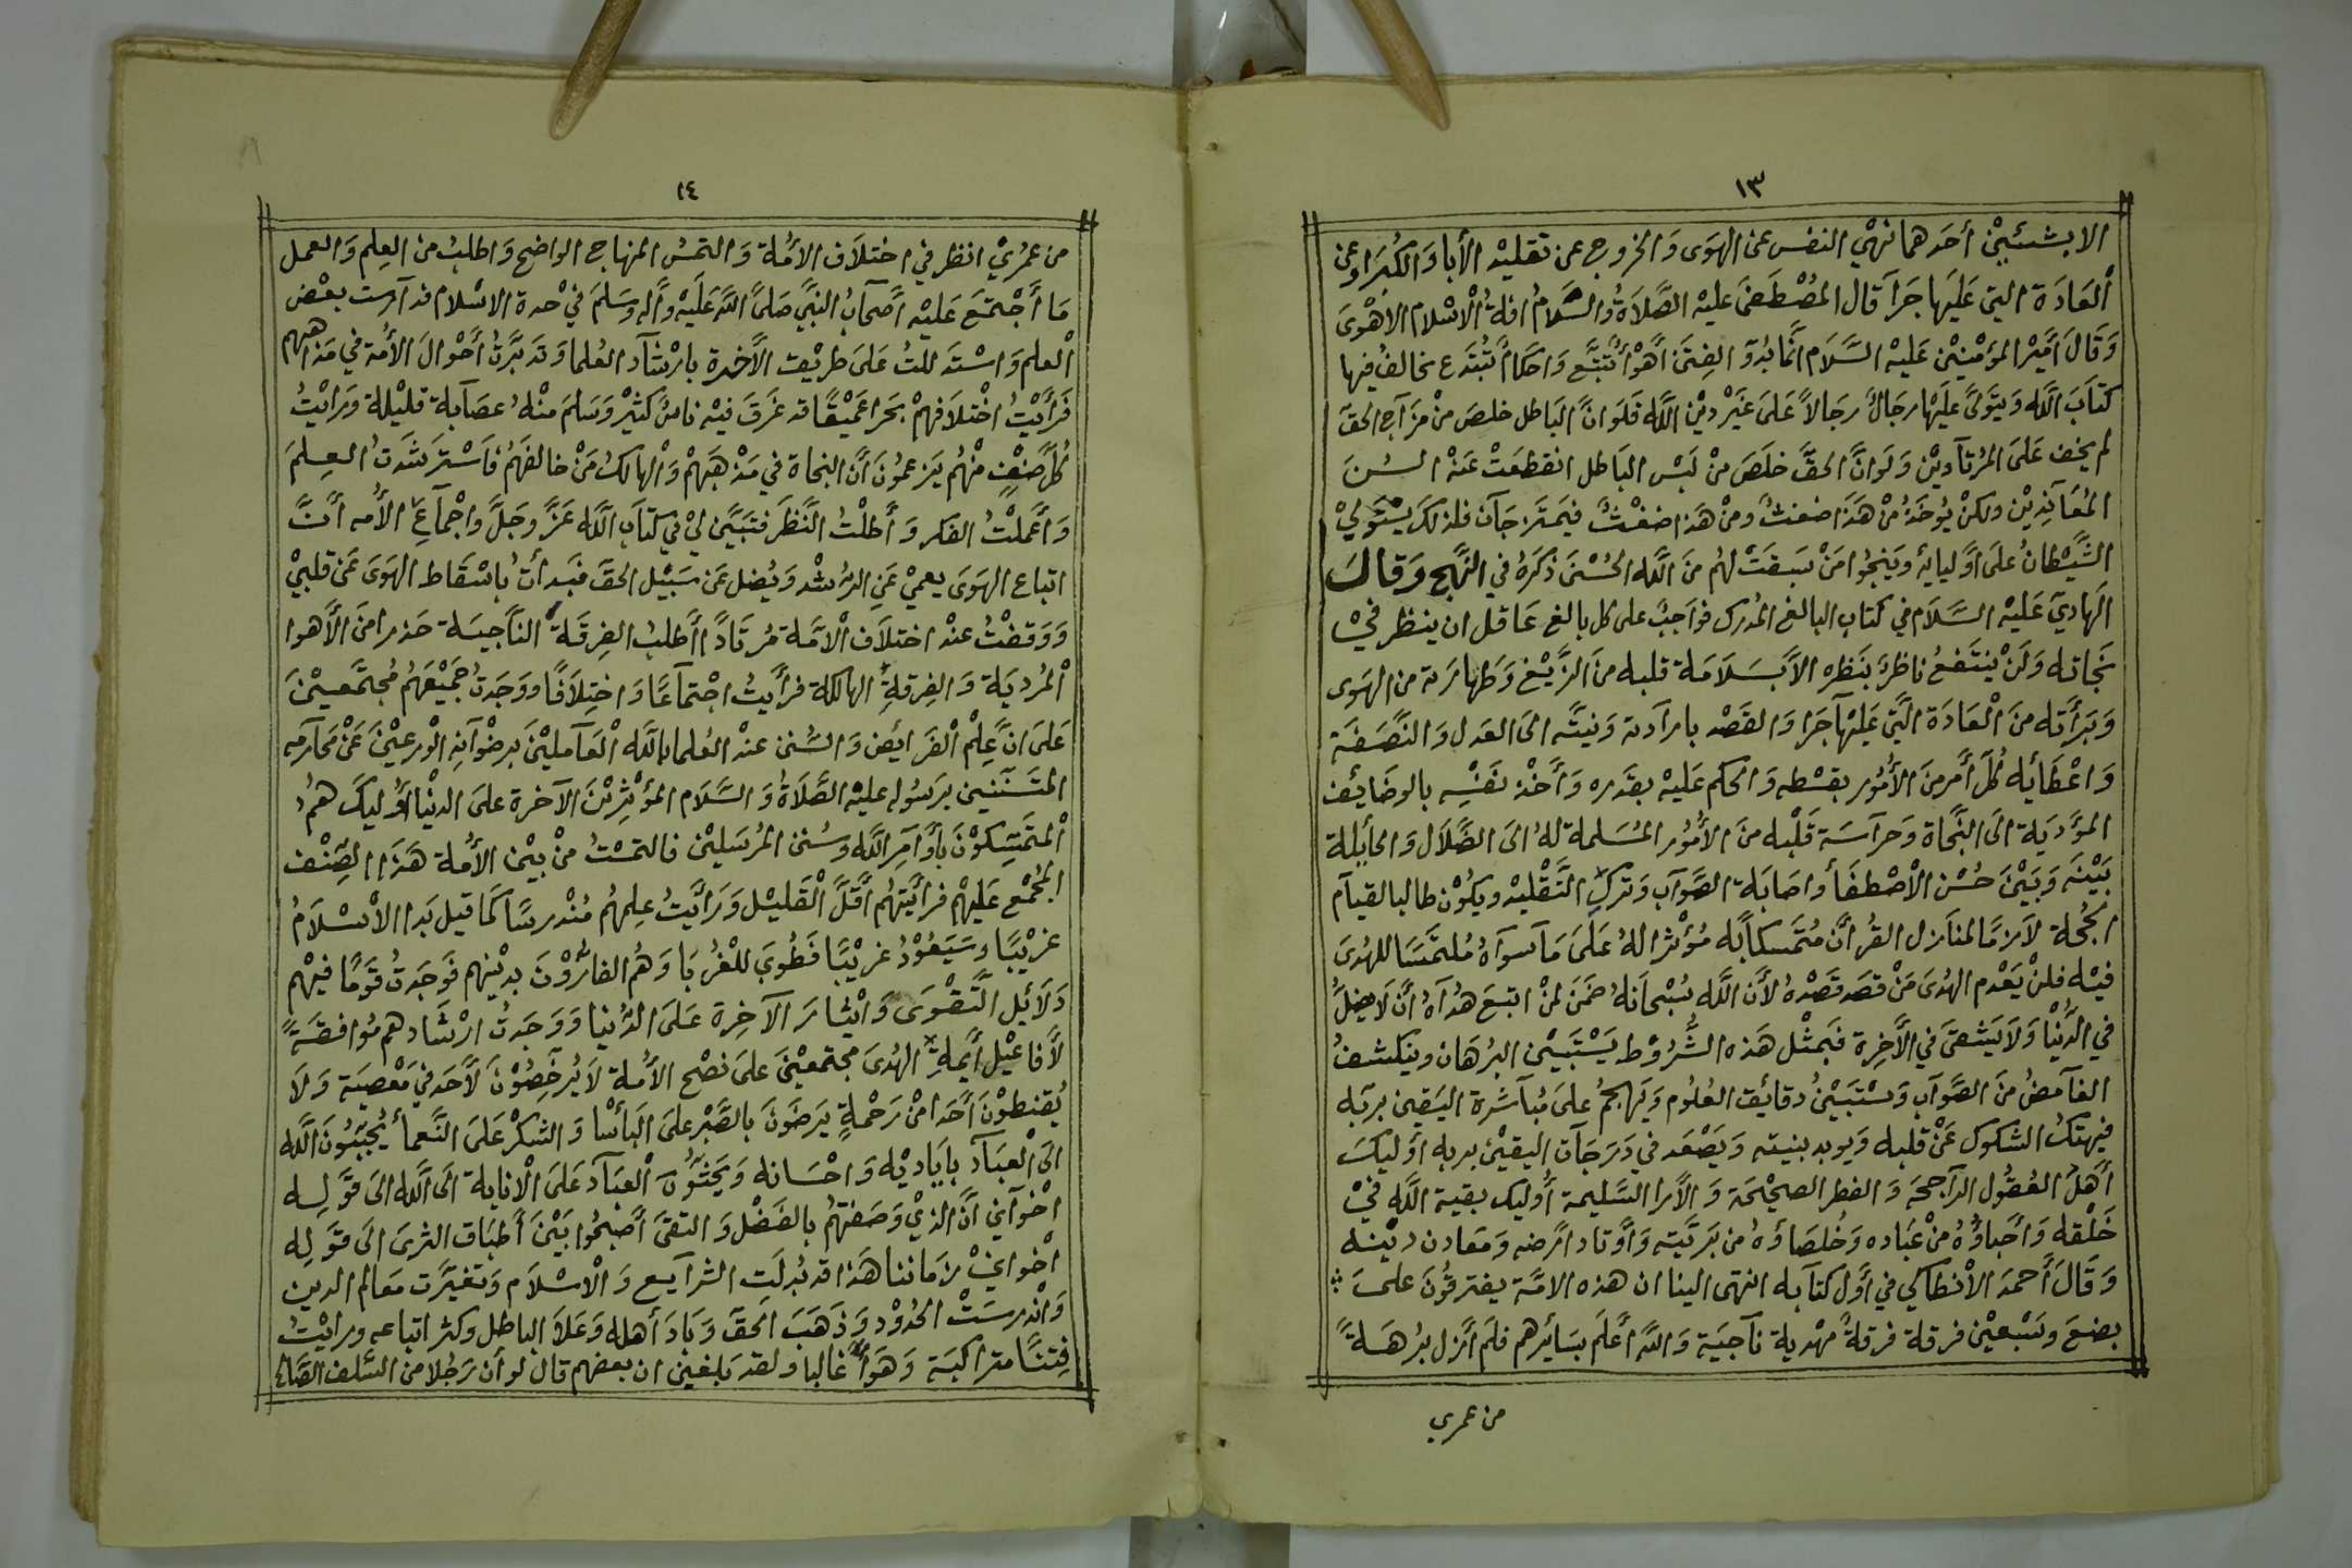 ١٣
الا بشيئين أحدهما نهي النفس عن الهوى والخروج عن تقليد الأبا والكبرا وعن
العادة التي عليها جرا قال المصطفى عليه الصلاة والسلام افة الاسلام الاهوى
وقال أمير المؤمنين عليه السلام انما بدؤ الفتن أهوأ تتبع واحكام تبتدع يخالف فيها
كتاب الله ويتولى عليها رجال رجالا على غير دين الله فلو ان الباطل خلص من مزاج الحق
لم يخف على المرتادين ولو ان الحق خلص من لبس الباطل انقطعت عنه السن
المعاندين ولكن يوخذ من هذا ضغث ومن هذا ضغث فيمتزجان فلذلك يستولي
الشيطان على أوليائه وينجوا من سبقت لهم من الله الحسنى ذكره في النهج وقال
الهادي عليه السلام في كتاب البالغ المدرك فواجب على كل بالغ عاقل ان ينظر في
نجاته ولن ينتفع ناظر بنظره الا بسلامة قلبه من الزيغ وطهارته من الهوى
وبرأته من العادة التي عليها جرا والقصد بارادته ونيته الى العدل والنصفة
واعطائه كل أمر من الأمور بقسطه والحكم عليه بقدره وأخذ نفسه بالوضائف
المؤدية الى النجاة وحراسة قلبه من الأمور المسلمة له الى الضلال والحايلة
بينه وبين حسن الأصطفأ واصابة الصواب وترك التقليد ويكون طالبا لقيام
الحجة لازما لمنازل القرأن متمسكا به مؤثرا له على ما سواه ملتمسا للهدى
فيه فلن يعدم الهدى من قصد قصده لأن الله سبحانه ضمن لمن اتبع هداه أن لا يضل
في الدنيا ولا يشقى في الأخرة فبمثل هذه الشروط يستبين البرهان وينكشف
الغامض من الصواب وستبين دقائق العلوم ويهجم على مباشرة اليقين بربه
فيهتك الشكوك عن قلبه ويويد بنيته ويصعد في درجات اليقين بربه أوليك
أهل العقول الراجحة والفطر الصحيحة والأرا السليمة أوليك بقية الله في
خلقه وأحباؤه من عباده وخلصاؤه من بريته وأوتاد ارضه ومعادن دينه
وقال أحمد الأنطاكي في أول كتابه انتهى الينا ان هذه الامة يفترقون على
بضع وسبعين فرقة فرقة مهدية ناجية والله أعلم بسائرهم فلم أزل برهة
من عمري
١٤
من عمري انظر في اختلاف الأمة والتمس المنهاج الواضح واطلب من العلم والعمل
ما أجتمع عليه أصحاب النبي صلى الله عليه وأله وسلم في حدة الاسلام فدارست بعض
العلم واستدللت على طريق الأخرة بارشاد العلما وتدبرت أحوال الأمة في مذاهبهم
فرأيت اختلافهم بحرا عميقا قد غرق فيه ناس كثير وسلم منه عصابة قليلة ورايت
كل صنف منهم يزعمون أن النجاة في مذهبهم والهالك من خالفهم فأسترشدت العلم
وأعملت الفكر وأطلت النظر فتبين لي في كتاب الله عز وجل واجماع الأمه أن
اتباع الهوى يعمي عن الرشد ويضل عن سبيل الحق فبدأت باسقاط الهوى عن قلبي
ووقفت عند اختلاف الأمة مرتادا أطلب الفرقة الناجية حذرا من الأهوا
المردية والفرقة الهالكة فرأيت اجتماعا واختلافا ووجدت جميعهم مجتمعين
على ان علم الفرايض والسنن عند العلما بالله العاملين برضوانه الورعين عن محارمه
المتسننين برسوله عليه الصلاة والسلام المؤثرين الآخرة على الدنيا أوليك هم
المتمسكون بأوامر الله وسنن المرسلين فالتمست من بين الأمة هذا الصنف
المجمع عليهم فرأيتهم أقل القليل ورأيت علمهم مندرسا كما قيل بدا الأسلام
غريبا وسيعود غريبا فطوبى للغربا وهم الفارون بدينهم فوجدت قوما فيهم
دلائل التقوى وايثار الآخرة على الدنيا ووجدت ارشادهم موافقة
لأفاعيل أيمة الهدى مجتمعين على نصح الأمة لا يرخصون لأحد في معصية ولا
يقنطون أحدا من رحمة يرضون بالصبر على البأسا والشكر على النعمأ يحببون الله
الى العباد باياديه واحسانه ويحثون العباد على الانابة الى الله الى قوله
اخواني أن الذي وصفتهم بالفضل والتقى أصبحوا بين أطباق الثرى الى قوله
اخواني زماننا هذا قد بدلت الشرايع والاسلام وتغيرت معالم الدين
واندرست الحدود وذهب الحق وباد أهله وعلا الباطل وكثر اتباعه ورايت
فتنا متراكبة وهوأ غالبا ولقد بلغني ان بعضهم قال لو أن رجلا من السلف الصالح